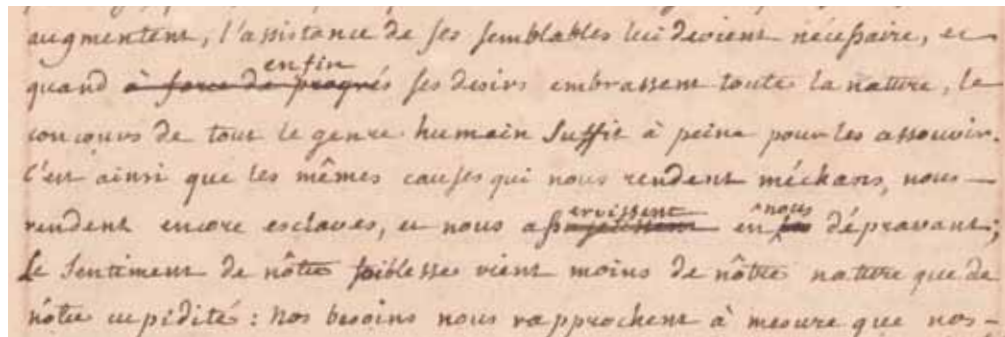 augmentent, l'assistance de ses semblables lui devient nécessaire, et
enfin
quand à force de progrés ses desirs embrassent toute la nature, le
concours de tout le genre humain suffit à peine pour les assouvir.
C'est ainsi que les mêmes causes qui nous rendent méchans, nous
ervissent nous
rendent encore esclaves, et nous assujetissent en dépravant;
le sentiment de nôtre foiblesse vient moins de nôtre nature que de
nôtre cupidité: nos besoins nous rapprochent à mesure que nos